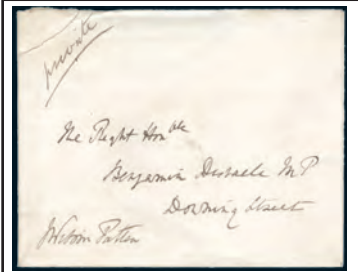 private
The Right Hon^ble
Benjamin Disraeli M P
Downing Street
Wilson Patten